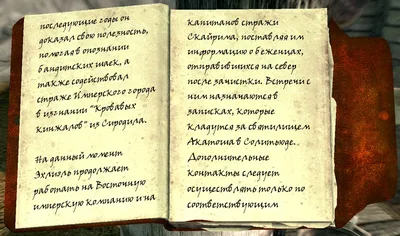 последующие годы он
доказал свою полезность,
помогая в опознании
бандитских шаек, а
также содействовал
страже Имперского города
в изгнании "Кровавых
кинжалов" из Сиродила.
На данный момент
Эхлиоль продолжает
работать на Восточную
имперскую компанию и на
капитанов стражи
Скайрима, поставляя им
информацию о беженцах,
отправившихся на север
после зачистки. Встречи с
ним назначаются в
записках, которые
кладутся за святилищем
Акатоша в Солитьюде.
Дополнительные
контакты следует
осуществлять только по
соответствующим